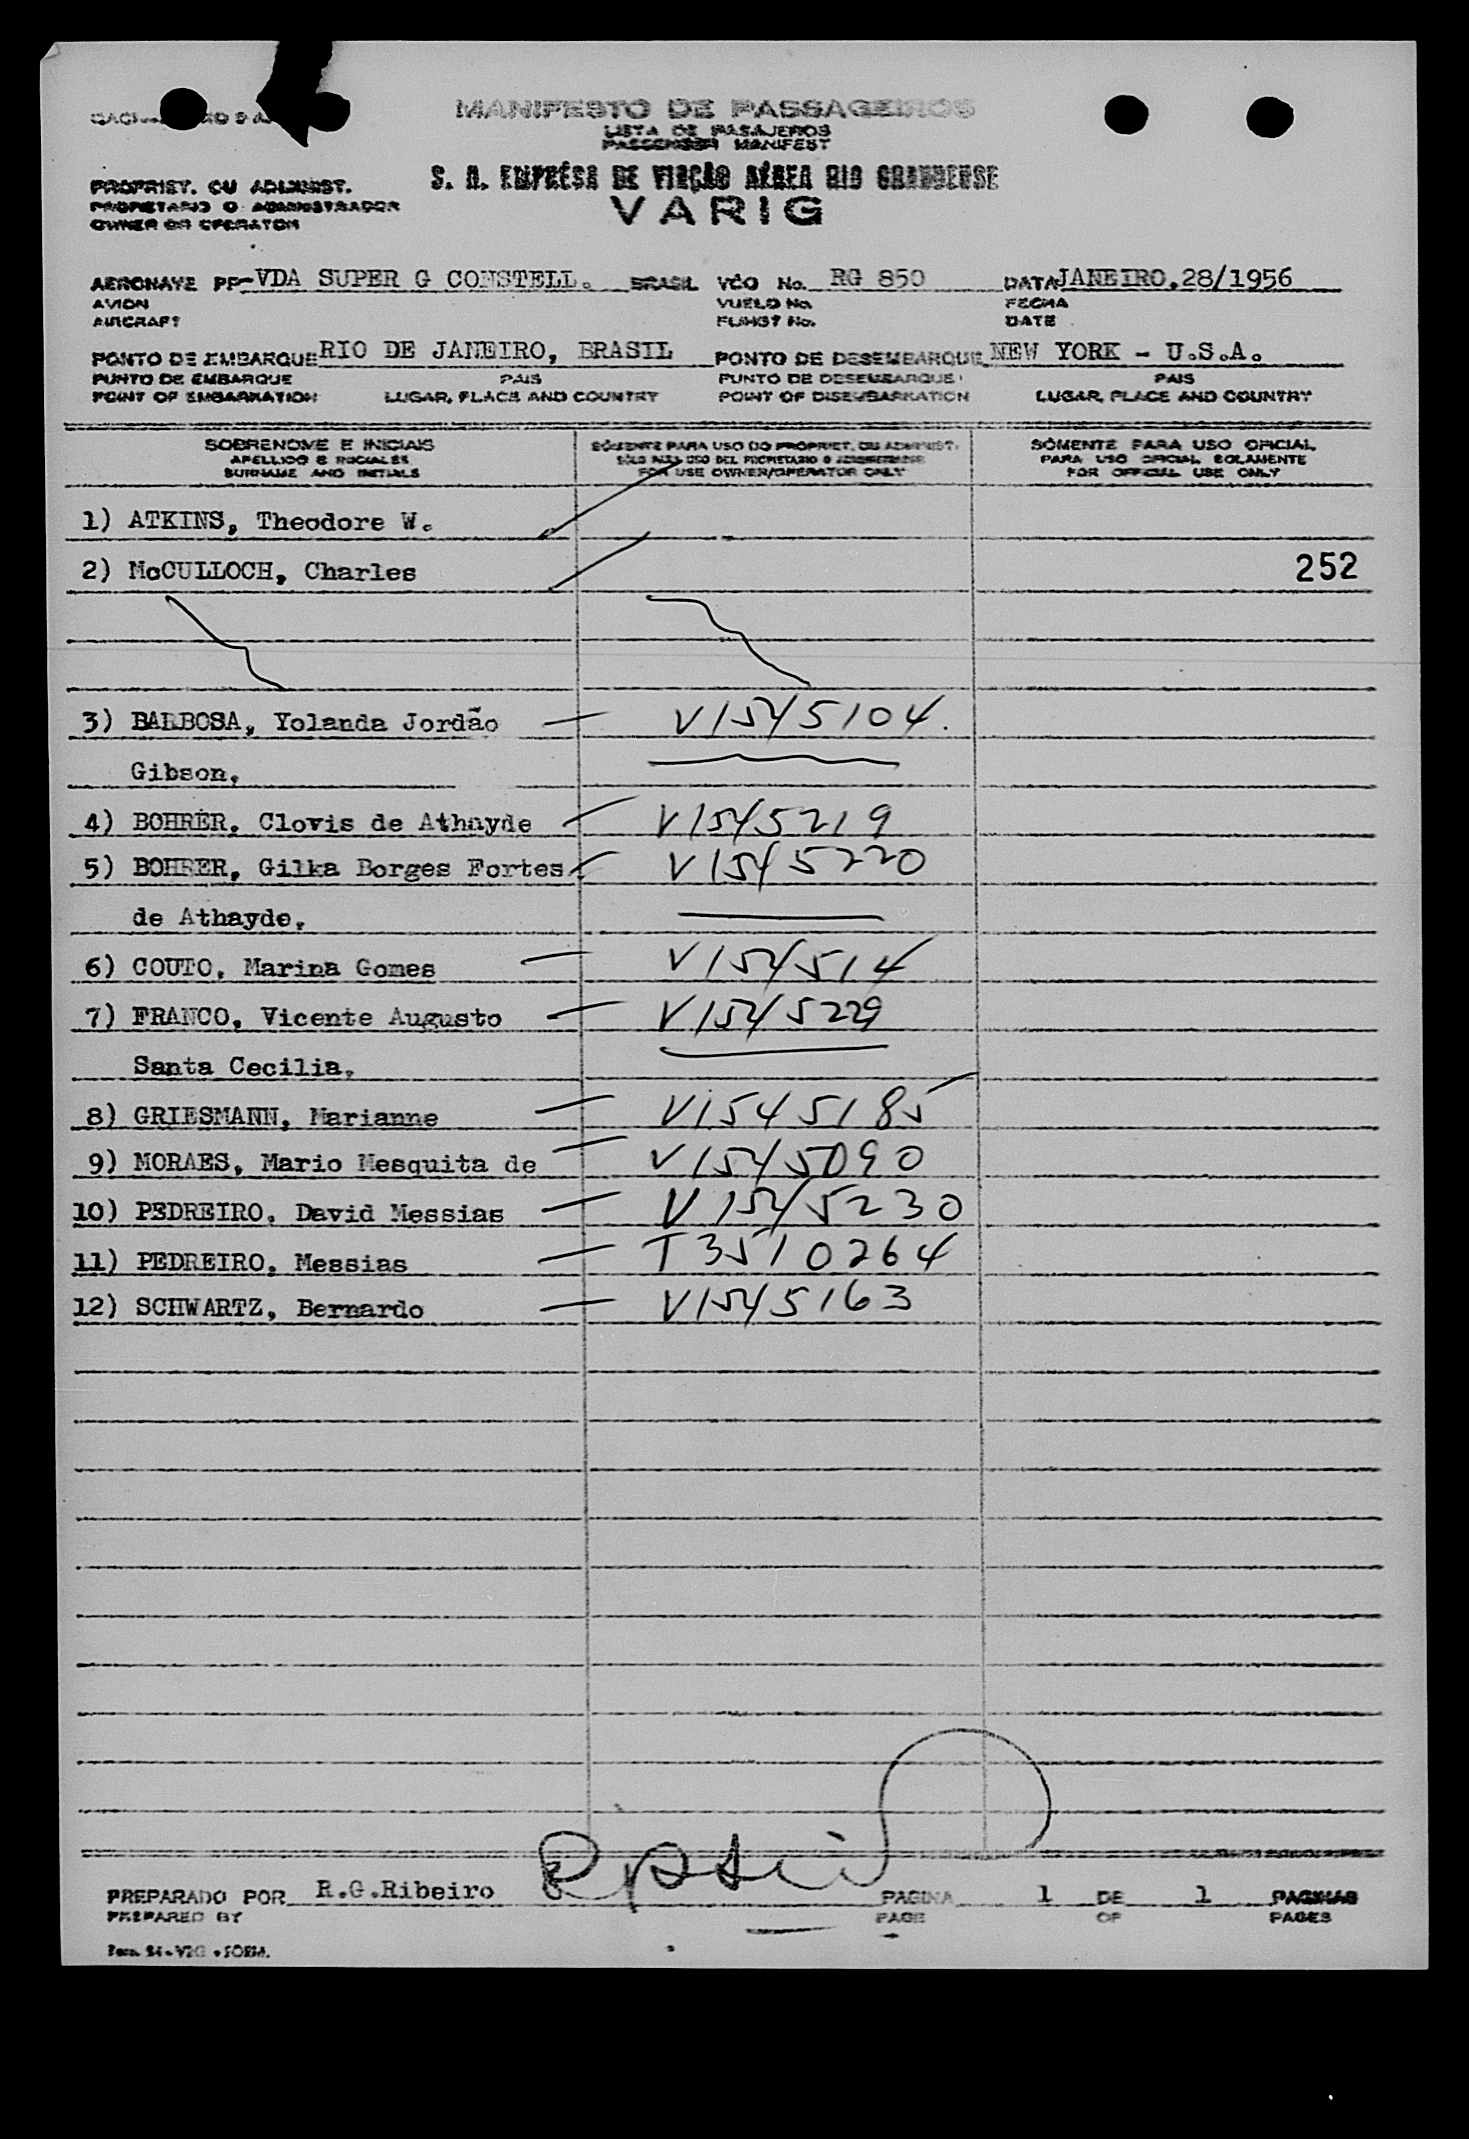 MANIFESTO DE PASSAGEIROS
LISTA DE PASAJEROS
PASSENGER MANIFEST
PROPRIET. OU ADMINIST.
PROPIETARIO O ADMINISTRADOR
OWNER OR OPERATOR
S. A. EMPRÊSA DE VIAÇÃO AÉREA RIO GRANDENSE
VARIG
AERONAVE PP-VDA SUPER G CONSTELL. BRASIL VÔO No. RG 850 DATA JANEIRO,28/1956
AVION VUELO No. FECHA
AIRCRAFT FLIGHT No. DATE
PONTO DE EMBARQUE RIO DE JANEIRO, BRASIL PONTO DE DESEMBARQUE NEW YORK - U.S.A.
PUNTO DE EMBARQUE PAIS PUNTO DE DESEMBARQUE PAIS
POINT OF EMBARKATION LUGAR, PLACE AND COUNTRY POINT OF DISEMBARKATION LUGAR, PLACE AND COUNTRY
SOBRENOME E INICIAIS SÓMENTE PARA USO DO PROPRIET. OU ADMINIST. SÓMENTE PARA USO OFICIAL
APELLIDO E INICIALES SOLO PARA USO DEL PROPIETARIO O ADMINISTRADOR PARA USO OFICIAL SOLAMENTE
SURNAME AND INITIALS FOR USE OWNER/OPERATOR ONLY FOR OFFICIAL USE ONLY
1) ATKINS, Theodore W.
2) McCULLOCH, Charles 252
3) BARBOSA, Yolanda Jordão V1545104.
Gibson,
4) BOHRER, Clovis de Athayde V1545219
5) BOHRER, Gilka Borges Fortes V1545220
de Athayde,
6) COUTO, Marina Gomes V154514
7) FRANCO, Vicente Augusto V1545229
Santa Cecilia,
8) GRIESMANN, Marianne V1545185
9) MORAES, Mario Mesquita de V1545090
10) PEDREIRO, David Messias V1545230
11) PEDREIRO, Messias T3510264
12) SCHWARTZ, Bernardo V1545163
PREPARADO POR R.G.Ribeiro PAGINA 1 DE 1 PAGINAS
PREPARED BY PAGE OF PAGES